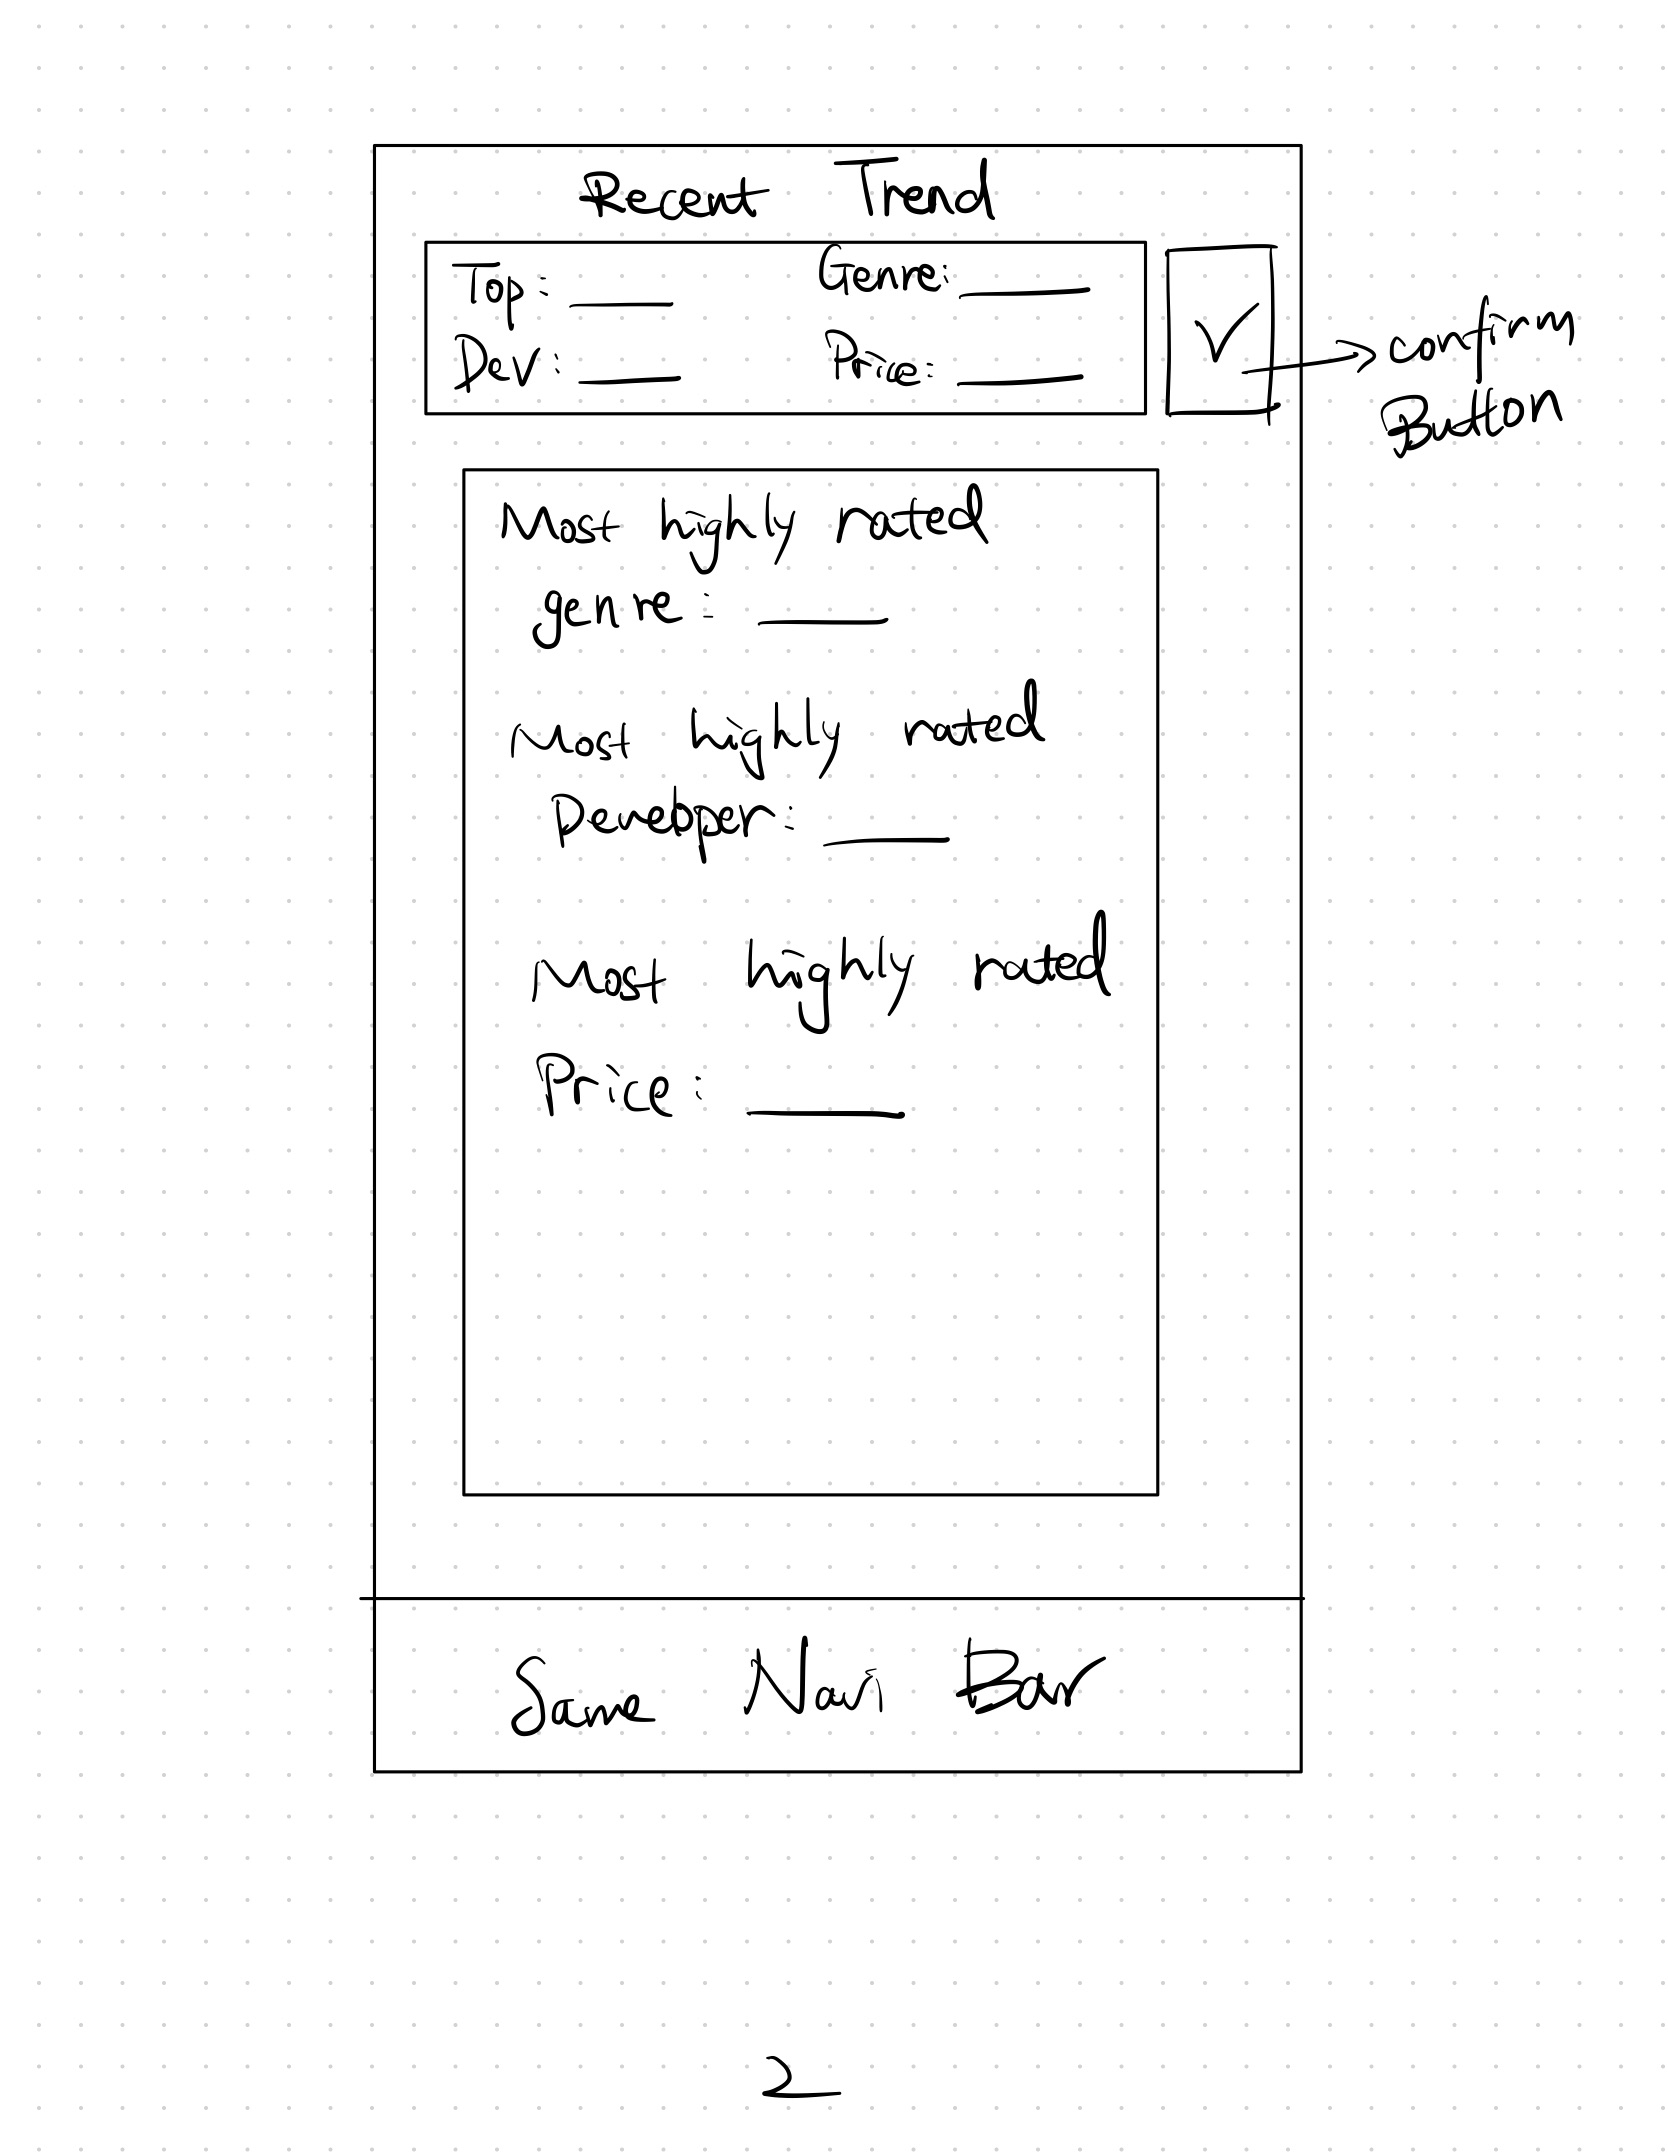 Recent Trend
Top: Genre:
Dev: Price:
confirm
Button
Most highly rated
genre:
Most highly rated
Developer:
Most highly rated
Price:
Same Navi Bar
2